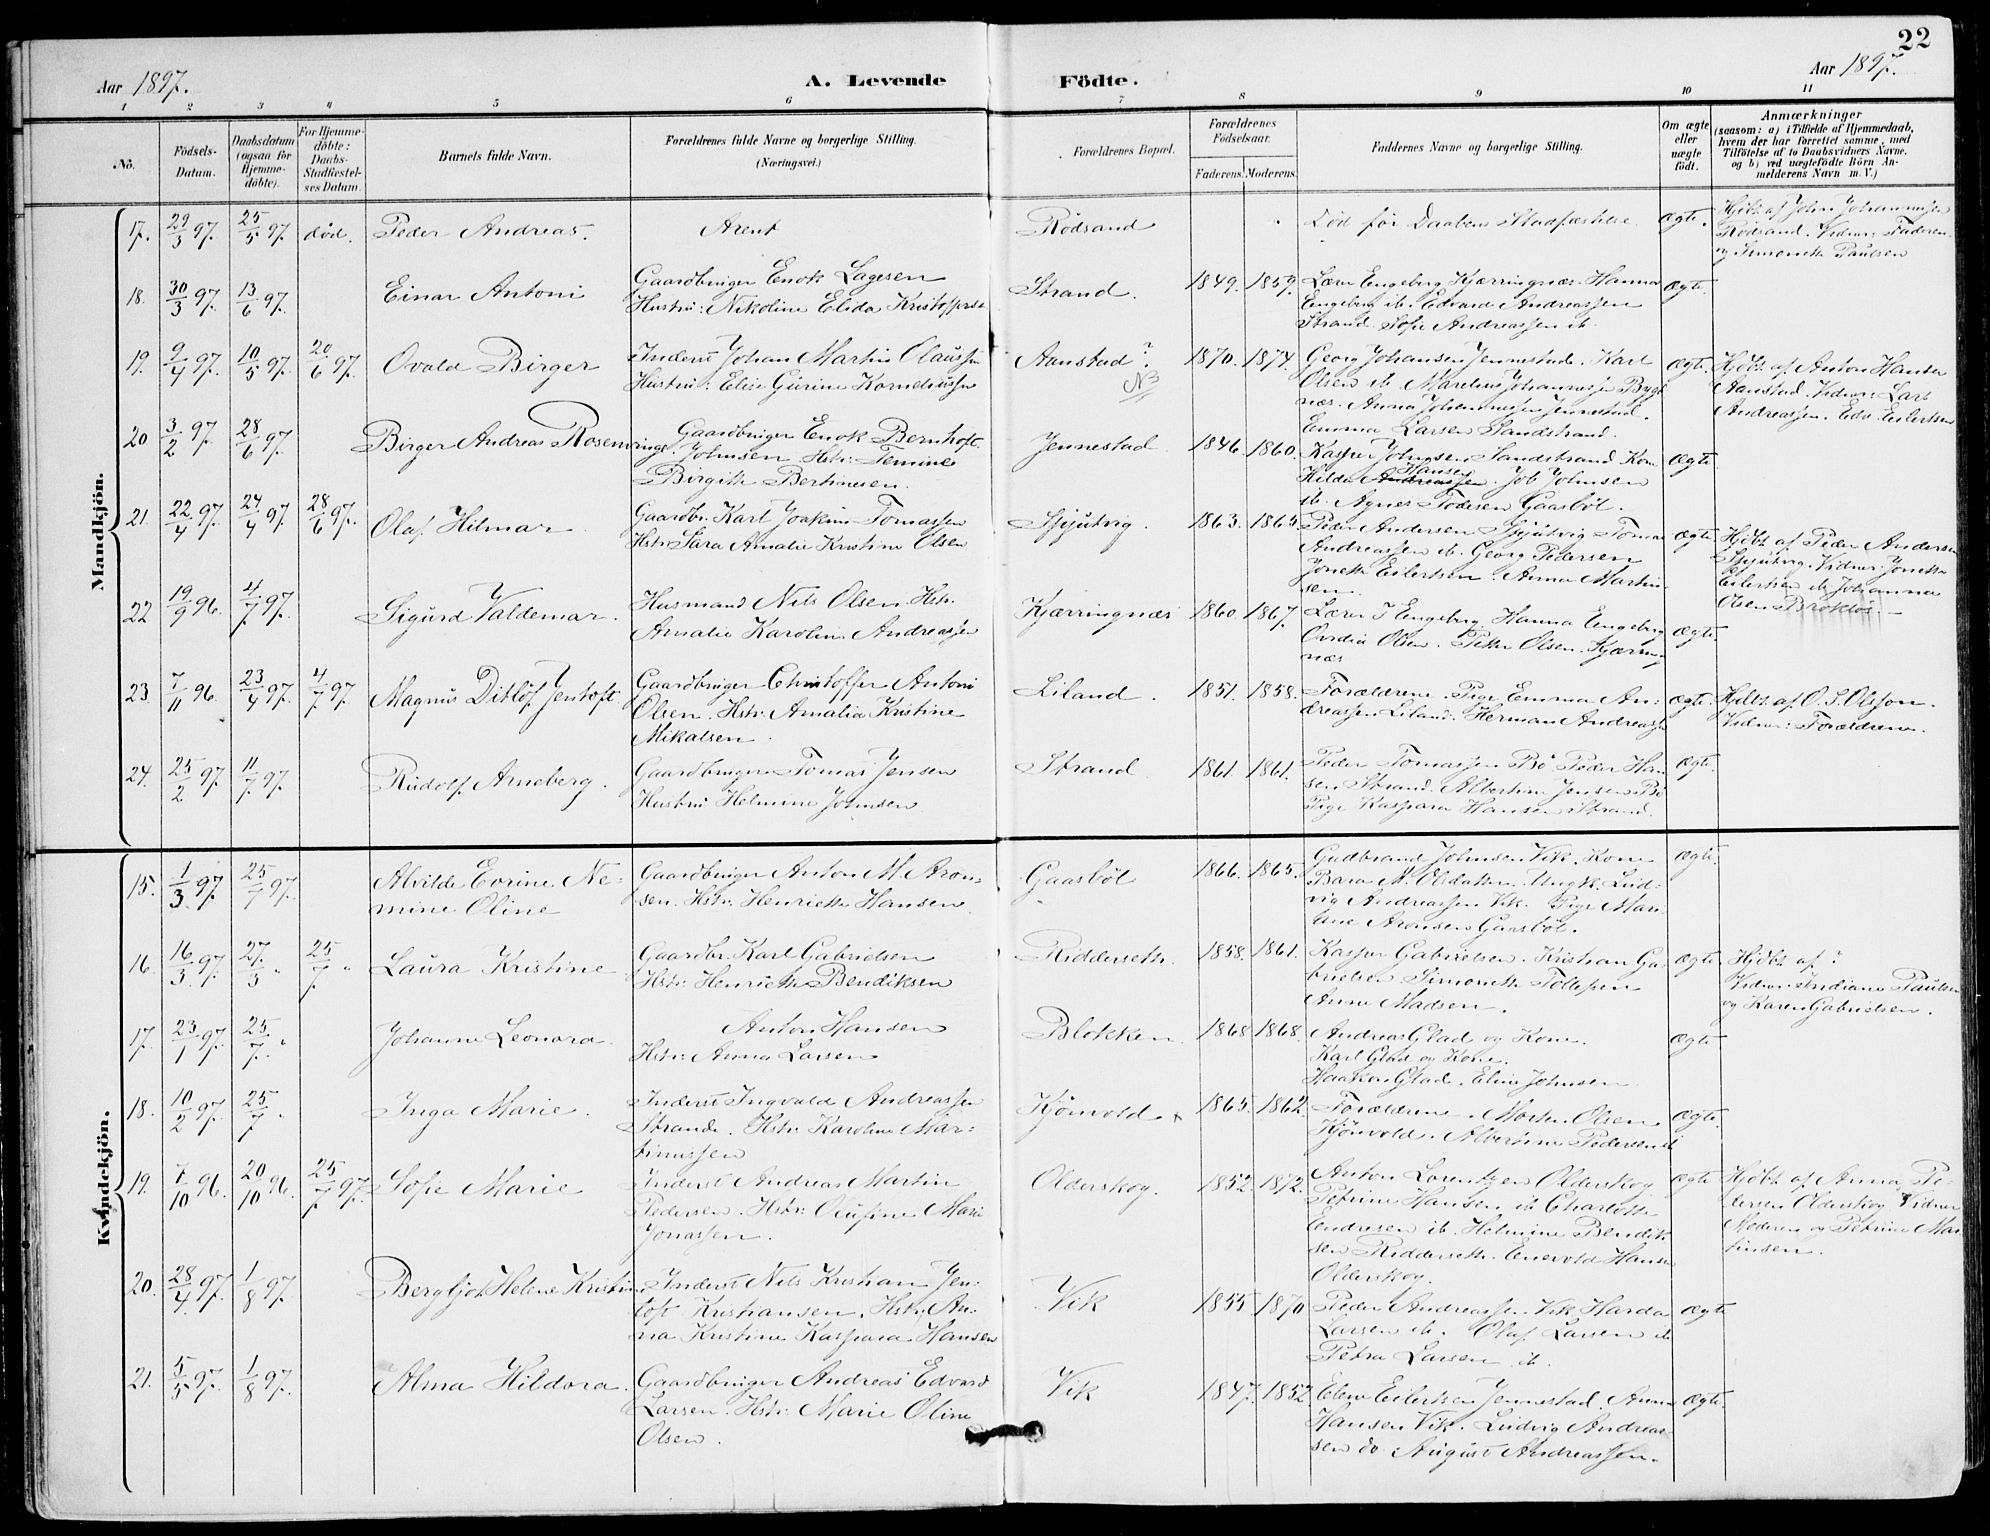 22
Aar 1897. A. Levende Födte. Aar 1897.
1 2 3 4 5 6 7 8 9 10 11
No.
Födsels-
Datum.
Daabsdatum
(ogsaa for
Hjemme-
döbte).
For Hjemme-
döbte:
Daabs-
Stadfæstel-
ses Datum.
Barnets fulde Navn.
Forældrenes fulde Navne og borgerlige Stilling.
(Næringsvei.)
Forældrenes Bopæl.
Forældrenes
Födselsaar.
Faderens. Moderens.
Faddernes Navne og borgerlige Stilling.
Om ægte
eller
uægte
födt.
Anmærkninger
(saasom: a) i Tilfælde af Hjemmedaab,
hvem der har forrettet samme, med
Tilföielse af to Daabsvidners Navne.
og b) ved uægtefödte Börn An-
melderens Navn m. V.)
Mandkjön.
17. 29/3 97. 25/5 97. död. Peder Andreas. Arent Rödsand Död för Daabens Stadfæstelse ægte. Hjdbt. af John Johannesen
Rödsand. Vidner: Faderen
og Simonette Paulsen
18. 30/3 97. 13/6 97. Einar Antoni Gaardbruger Enok Lagesen Strand. 1849. 1859. Lærer Engeberg Kjærringnæs. Hanna ægte.
Hustru: Nikoline Elida Kristoffersd. Engeberg ib. Edvard Andreassen
Strand. Sofie Andreassen ib.
19. 9/4 97. 10/5 97. 20/6 97. Ovald Birger Inderst Johan Martin Olaussen Aanstad? 1870. 1874. Georg Johansen Jennestad. Karl ægte. Hjdbt. af Anton Hansen
Hustru: Elise Gurine Korneliussen Olsen ib. Marelius Johannessen Bygt- Aanstad. Vidner: Lars
næs. Anna Johannessen Jennestad. Andreassen. Edv. Eilertsen
Emma Larsen Sandstrand.
20 3/2 97. 28/6 97. Birger Andreas Rosenvinge Gaardbruger Enok Bernhoft Jennestad 1846. 1860. Kasper Johnsen Sandstrand Kone ægte
Johnsen Hstr: Temine Hilda Hansen. Job Johnsen
Birgitte Bertinesen. ib. Agnes Todesen Gaasböl.
21. 22/4 97. 24/4 97 28/6 97. Olaf Hilmar Gaardbr. Karl Joakim Tomassen 1863. Peder Andersen ægte Hjdbt. af Peder Andersen
Hstr: Sara Amalie Kristine Olsen Andreassen ib. Georg Pedersen Vidner: Jonette
Jonette Eilertsen. Anna Martin- Eilertsen ib Johanna
sen. Olsen
22 19/9 96. 4/7 97. Sigurd Valdemar. Husmand Nils Olsen Hstr. Kjærringnæs 1860. 1867. Lærer J Engeberg. Hanna Engeberg ægte.
Amalie Karoline Andreassen Ovidia Olsen. Petter Olsen. Kjærring-
næs
23 7/11 96. 23/4 97. 4/7 97. Magnus Ditlöf Jentoft Gaardbruger Christoffer Antoni Liland. 1851. 1858. Forældrene. Pige Emma An- ægte. Hjdbt. af O. S. Olsson.
Olsen. Hstr: Amalia Kristine dreassen Liland. Herman Andreassen Vidner: Forældrene.
Mikalsen.
24. 25/2 97. 11/7 97. Rudolf Arneberg. Gaardbruger Tomas Jensen Strand 1861. 1861. Peder Tomassen Bö Peder Han- ægte.
Hustru Helmine Johnsen sen Strand. Albertine Jensen Bö
Pige Kaspara Hansen Strand.
Kvindekjön.
15. 1/3 97. 25/7 97. Alvilde Evrine Ne- Gaardbruger Anton M. Aron- Gaasböl 1866. 1865. Gudbrand Johnsen Vik. Kone ægte.
mine Oline sen. Hstr: Henriette Hansen Bara M. Olsdatter. Ungk. Lud-
vig Andreassen Vik. Pige Mari-
ane Aronsen Gaasböl.
16. 16/3 97. 27/3 " 25/7 " Laura Kristine Gaardbr. Karl Gabrielsen Ridderseth. 1858. 1861. Kasper Gabrielsen. Kristian Ga- ægte Hjdbt af?
Hstr: Henriette Bendiksen brielsen Simonette Tollefsen Vidner: Indiane Paulsen
Anne Madsen. og Karen Gabrielsen.
17. 23/1 97. 25/7 " Johanne Leonora. Anton Hansen Blokken. 1868 1868. Andreas Glad og Kone. ægte
Hstr: Anna Larsen Karl Glad og Kone.
Haakon Glad. Eline Johnsen
18. 10/2 97. 25/7 " Inga Marie. Inderst Ingvald Andreassen Kjönvold 1865. 1862. Forældrene. Morten Olsen ægte.
Strand. Hstr: Karoline Mar- Kjönvold. Albertine Pedersen ib
tinussen
19. 7/10 96. 20/10 96. 25/7 97. Sofie Marie Inderst Andreas Martin Olderskog. 1852. 1872. Anton Lorentzen Olderskog ægte Hjdbt af Anna Pe-
Pedersen. Hstr: Olufine Marie Petrine Hansen ib Charlotte dersen Olderskog Vidner
Jonassen. Endresen ib. Helmine Bendik- Moderen og Petrine Mar-
sen Ridderseth. Enevold Hansen tinsen.
Olderskog.
20. 28/4 97. 1/8 97. Bergljot Helene Kristine Inderst Nils Kristian Jen- Vik 1855 1870 Peder Andreassen Vik Harda ægte
toft Kristiansen. Hstr: An- Larsen ib. Olaf Larsen ib
na Kristine Kaspara Hansen Petra Larsen ib.
21. 5/5 97. 1/8 97. Alma Hildora. Gaardbruger Andreas Edvard Vik 1847. 1852 Elene Eilertsen Jennestad. Anna ægte.
Larsen. Hstr: Marie Oline Hansen Vik. Ludvig Andreas-
Olsen. sen do August Andreassen.